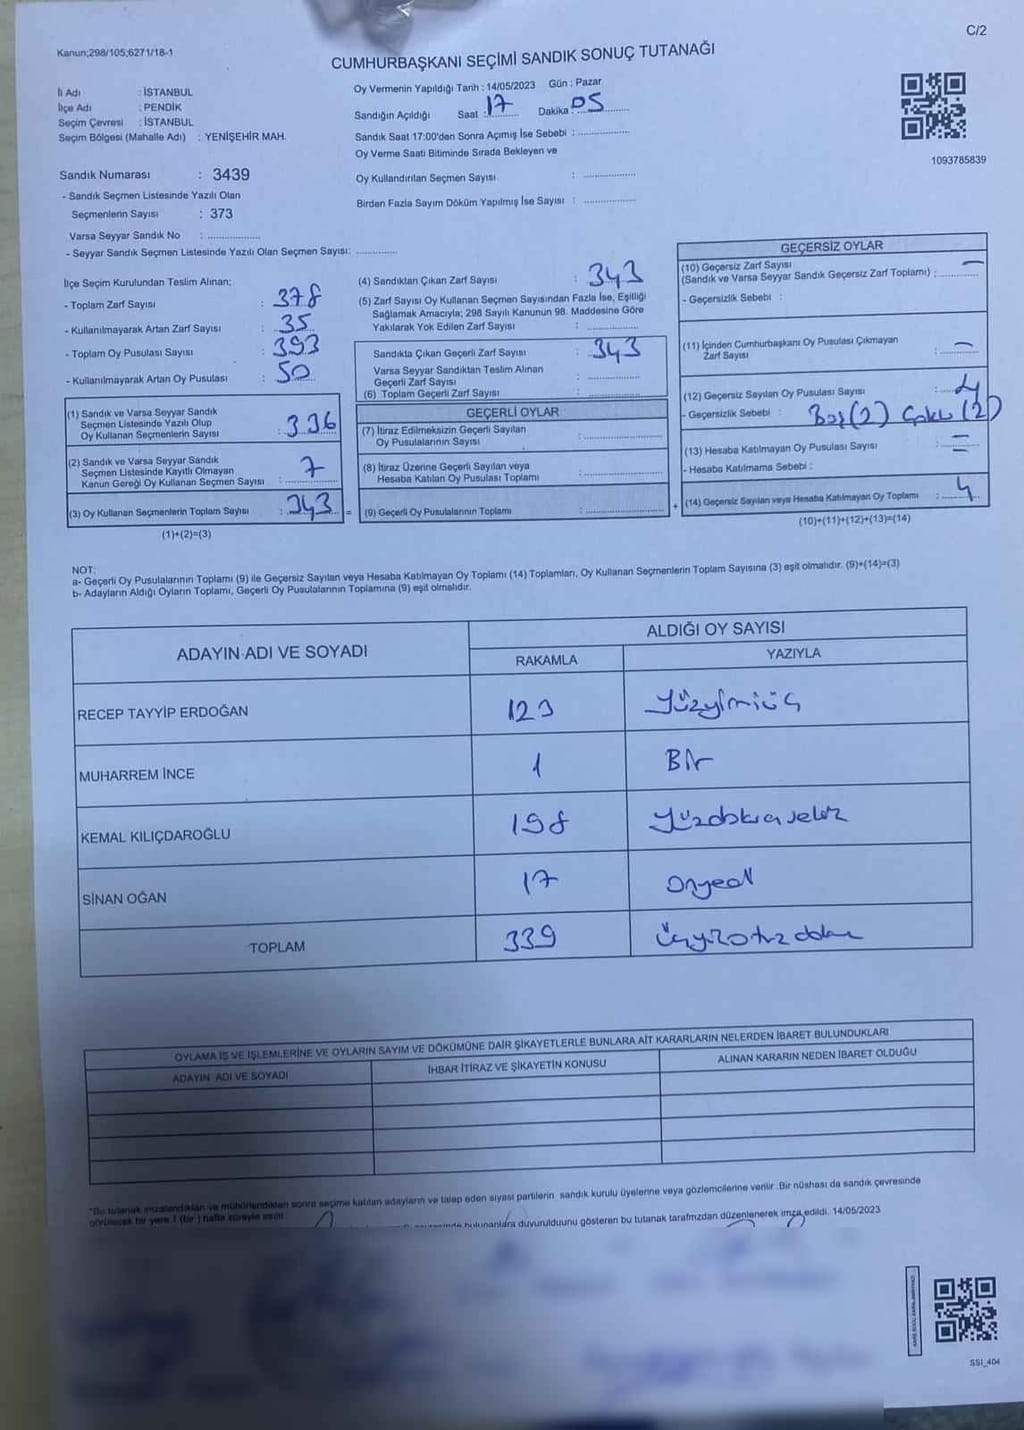 Kanun;298/105;6271/18-1
C/2
CUMHURBAŞKANI SEÇİMİ SANDIK SONUÇ TUTANAĞI
İl Adı : İSTANBUL
İlçe Adı : PENDİK
Seçim Çevresi : İSTANBUL
Seçim Bölgesi (Mahalle Adı) : YENİŞEHİR MAH.
Sandık Numarası : 3439
- Sandık Seçmen Listesinde Yazılı Olan
Seçmenlerin Sayısı : 373
Varsa Seyyar Sandık No : ..............
- Seyyar Sandık Seçmen Listesinde Yazılı Olan Seçmen Sayısı: ............
Oy Vermenin Yapıldığı Tarih : 14/05/2023 Gün : Pazar
Sandığın Açıldığı Saat : 17 Dakika : 05
Sandık Saat 17:00'den Sonra Açımış İse Sebebi : ..............
Oy Verme Saati Bitiminde Sırada Bekleyen ve
Oy Kullandırılan Seçmen Sayısı : ..............
Birden Fazla Sayım Döküm Yapılmış İse Sayısı : ..............
1093785839
İlçe Seçim Kurulundan Teslim Alınan;
- Toplam Zarf Sayısı : 378
- Kullanılmayarak Artan Zarf Sayısı : 35
- Toplam Oy Pusulası Sayısı : 393
- Kullanılmayarak Artan Oy Pusulası : 50
(1) Sandık ve Varsa Seyyar Sandık
Seçmen Listesinde Yazılı Olup
Oy Kullanan Seçmenlerin Sayısı : 336
(2) Sandık ve Varsa Seyyar Sandık
Seçmen Listesinde Kayıtlı Olmayan
Kanun Gereği Oy Kullanan Seçmen Sayısı : 7
(3) Oy Kullanan Seçmenlerin Toplam Sayısı : 343 =
(1)+(2)=(3)
(4) Sandıktan Çıkan Zarf Sayısı : 343
(5) Zarf Sayısı Oy Kullanan Seçmen Sayısından Fazla İse, Eşitliği
Sağlamak Amacıyla; 298 Sayılı Kanunun 98. Maddesine Göre
Yakılarak Yok Edilen Zarf Sayısı : ..............
Sandıkta Çıkan Geçerli Zarf Sayısı : 343
Varsa Seyyar Sandıktan Teslim Alınan
Geçerli Zarf Sayısı : ..............
(6) Toplam Geçerli Zarf Sayısı : ..............
GEÇERLİ OYLAR
(7) İtiraz Edilmeksizin Geçerli Sayılan
Oy Pusulalarının Sayısı : ..............
(8) İtiraz Üzerine Geçerli Sayılan veya
Hesaba Katılan Oy Pusulası Toplamı : ..............
(9) Geçerli Oy Pusulalarının Toplamı : .............. +
GEÇERSİZ OYLAR
(10) Geçersiz Zarf Sayısı
(Sandık ve Varsa Seyyar Sandık Geçersiz Zarf Toplamı) : —
- Geçersizlik Sebebi :
(11) İçinden Cumhurbaşkanı Oy Pusulası Çıkmayan
Zarf Sayısı : —
(12) Geçersiz Sayılan Oy Pusulası Sayısı : 4
- Geçersizlik Sebebi : Boş (2) Çoklu (2)
(13) Hesaba Katılmayan Oy Pusulası Sayısı : —
- Hesaba Katılmama Sebebi : —
(14) Geçersiz Sayılan veya Hesaba Katılmayan Oy Toplamı : 4
(10)+(11)+(12)+(13)=(14)
NOT:
a- Geçerli Oy Pusulalarının Toplamı (9) ile Geçersiz Sayılan veya Hesaba Katılmayan Oy Toplamı (14) Toplamları, Oy Kullanan Seçmenlerin Toplam Sayısına (3) eşit olmalıdır. (9)+(14)=(3)
b- Adayların Aldığı Oyların Toplamı, Geçerli Oy Pusulalarının Toplamına (9) eşit olmalıdır.
ADAYIN ADI VE SOYADI
ALDIĞI OY SAYISI
RAKAMLA YAZIYLA
RECEP TAYYİP ERDOĞAN 123 Yüzyirmiüç
MUHARREM İNCE 1 Bir
KEMAL KILIÇDAROĞLU 198 Yüzdoksansekiz
SİNAN OĞAN 17 Onyedi
TOPLAM 339 Üçyüzotuzdokuz
OYLAMA İŞ VE İŞLEMLERİNE VE OYLARIN SAYIM VE DÖKÜMÜNE DAİR ŞİKAYETLERLE BUNLARA AİT KARARLARIN NELERDEN İBARET BULUNDUKLARI
ADAYIN ADI VE SOYADI İHBAR İTİRAZ VE ŞİKAYETİN KONUSU ALINAN KARARIN NEDEN İBARET OLDUĞU
*Bu tutanak imzalandıktan ve mühürlendikten sonra seçime katılan adayların ve talep eden siyasi partilerin sandık kurulu üyelerine veya gözlemcilerine verilir. Bir nüshası da sandık çevresinde
görülecek bir yere 1 (bir) hafta süreyle asılır.
bulunanlara duyurulduunu gösteren bu tutanak tarafımzdan düzenlenerek imza edildi. 14/05/2023
SSI_404